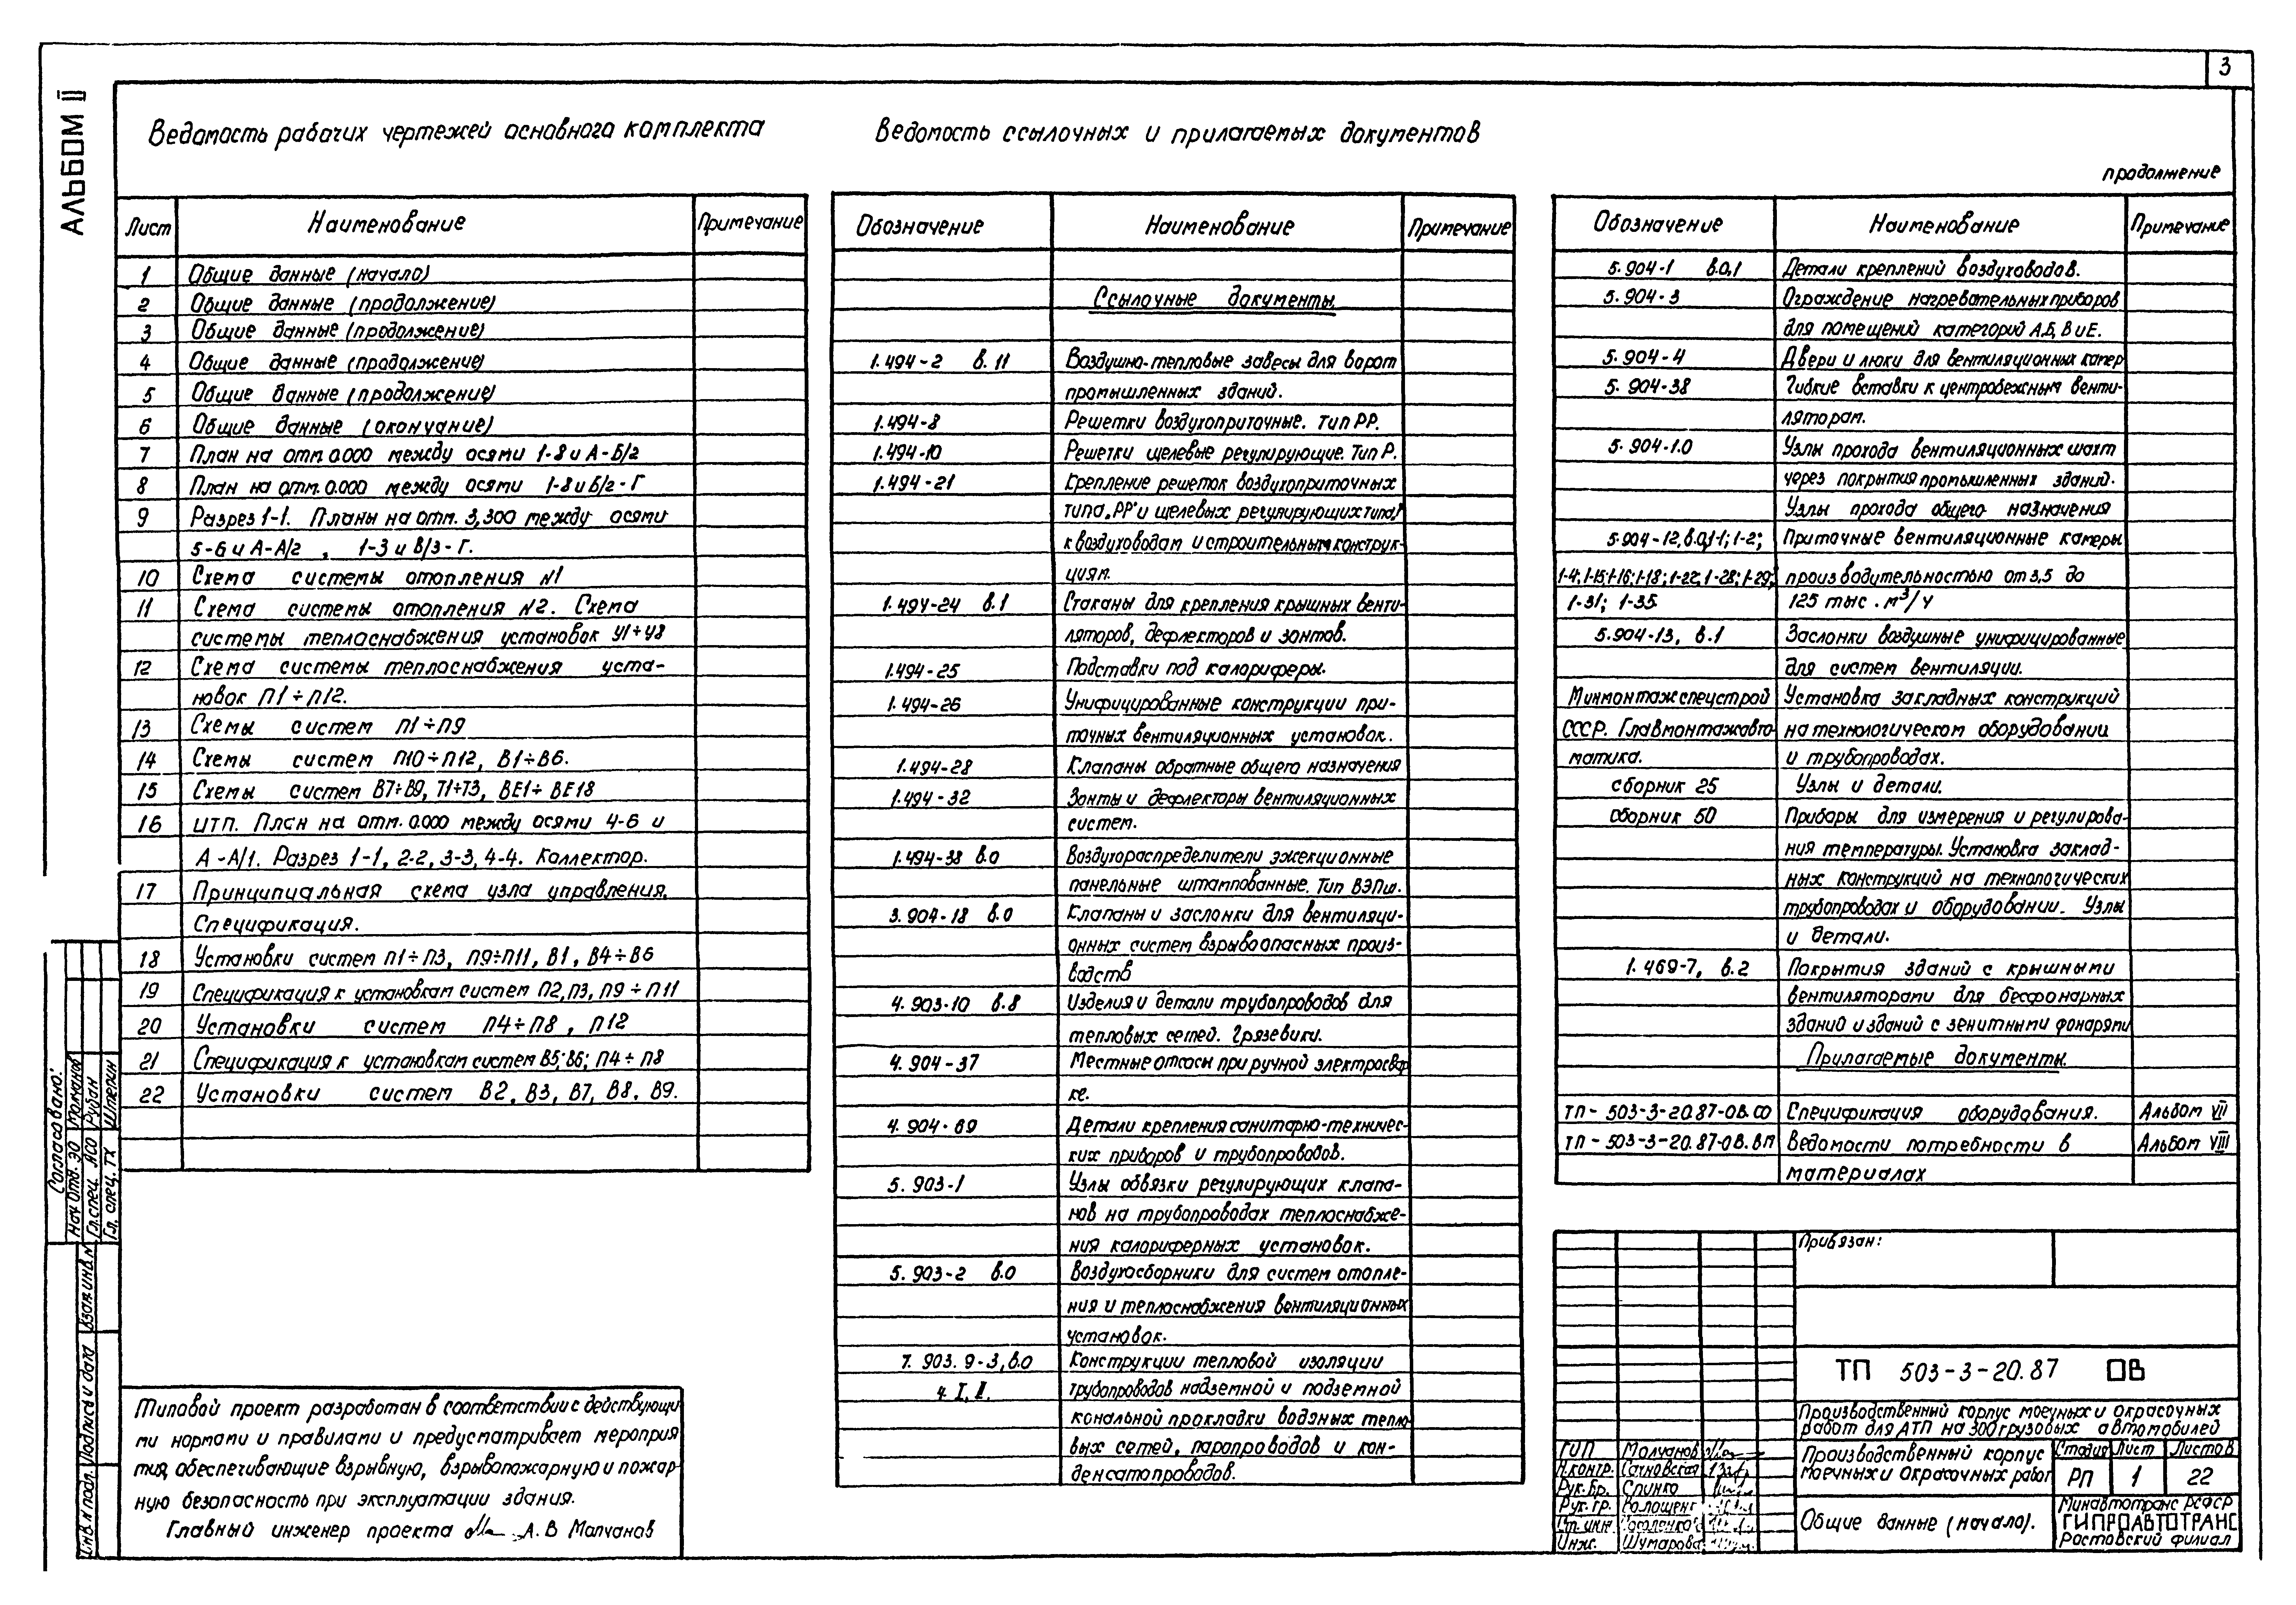 3
АЛЬБОМ II
Ведомость рабочих чертежей основного комплекта
Лист Наименование Примечание
1 Общие данные (начало)
2 Общие данные (продолжение)
3 Общие данные (продолжение)
4 Общие данные (продолжение)
5 Общие данные (продолжение)
6 Общие данные (окончание)
7 План на отм. 0.000 между осями 1-8 и А-Б/2
8 План на отм. 0.000 между осями 1-8 и Б/2-Г
9 Разрез 1-1. Планы на отм. 3,300 между осями
5-6 и А-А/2 , 1-3 и В/3-Г.
10 Схема системы отопления N1
11 Схема системы отопления N2. Схема
системы теплоснабжения установок У1÷У8
12 Схема системы теплоснабжения уста-
новок П1÷П12.
13 Схемы систем П1÷П9
14 Схемы систем П10÷П12, В1÷В6.
15 Схемы систем В7÷В9, Т1÷Т3, ВЕ1÷ВЕ18
16 ИТП. План на отм. 0.000 между осями 4-6 и
А-А/1. Разрез 1-1, 2-2, 3-3, 4-4. Коллектор.
17 Принципиальная схема узла управления.
Спецификация.
18 Установки систем П1÷П3, П9÷П11, В1, В4÷В6
19 Спецификация к установкам систем П2, П3, П9÷П11
20 Установки систем П4÷П8, П12
21 Спецификация к установкам систем В5; В6; П4÷П8
22 Установки систем В2, В3, В7, В8, В9.
Ведомость ссылочных и прилагаемых документов
Обозначение Наименование Примечание
Ссылочные документы
1.494-2 в.11 Воздушно-тепловые завесы для ворот
промышленных зданий.
1.494-8 Решетки воздухоприточные. Тип РР.
1.494-10 Решетки щелевые регулирующие. Тип Р.
1.494-21 Крепление решеток воздухоприточных
типа „РР" и щелевых регулирующих типа
к воздуховодам и строительным конструк-
циям.
1.494-24 в.1 Стаканы для крепления крышных венти-
ляторов, дефлекторов и зонтов.
1.494-25 Подставки под калориферы.
1.494-26 Унифицированные конструкции при-
точных вентиляционных установок.
1.494-28 Клапаны обратные общего назначения
1.494-32 Зонты и дефлекторы вентиляционных
систем.
1.494-38 в.0 Воздухораспределители эжекционные
панельные штампованные. Тип ВЭПш.
3.904-18 в.0 Клапаны и заслонки для вентиляци-
онных систем взрывоопасных произ-
водств
4.903-10 в.8 Изделия и детали трубопроводов для
тепловых сетей. Грязевики.
4.904-37 Местные отсосы при ручной электросвар
ке.
4.904-69 Детали крепления санитарно-техничес-
ких приборов и трубопроводов.
5.903-1 Узлы обвязки регулирующих клапа-
нов на трубопроводах теплоснабже-
ния калориферных установок.
5.903-2 в.0 Воздухосборники для систем отопле-
ния и теплоснабжения вентиляционных
установок.
7.903.9-3, в.0 Конструкции тепловой изоляции
ч. I, II. трубопроводов надземной и подземной
канальной прокладки водяных тепло
вых сетей, паропроводов и кон-
денсатопроводов.
продолжение
Обозначение Наименование Примечание
5.904-1 в.0,1 Детали креплений воздуховодов.
5.904-3 Ограждение нагревательных приборов
для помещений категорий А,Б, В и Е.
5.904-4 Двери и люки для вентиляционных камер
5.904-38 Гибкие вставки к центробежным венти-
ляторам.
5.904-1.0 Узлы прохода вентиляционных шахт
через покрытия промышленных зданий.
Узлы прохода общего назначения
5.904-12, в.0,1-1; 1-2; Приточные вентиляционные камеры
1-4; 1-15; 1-16; 1-18; 1-22; 1-28; 1-29; производительностью от 3,5 до
1-31; 1-35 125 тыс. м³/ч
5.904-13, в.1 Заслонки воздушные унифицированные
для систем вентиляции.
Минмонтажспецстрой Установка закладных конструкций
СССР. Главмонтажавто- на технологическом оборудовании
матика. и трубопроводах.
сборник 25 Узлы и детали.
Сборник 50 Приборы для измерения и регулирова-
ния температуры. Установка заклад-
ных конструкций на технологических
трубопроводах и оборудовании. Узлы
и детали.
1.469-7, в.2 Покрытия зданий с крышными
вентиляторами для бесфонарных
зданий и зданий с зенитными фонарями
Прилагаемые документы.
ТП-503-3-20.87-ОВ.СО Спецификация оборудования. Альбом VII
ТП-503-3-20.87-ОВ.ВП Ведомости потребности в Альбом VIII
материалах
Типовой проект разработан в соответствии с действующи
ми нормами и правилами и предусматривает мероприя
тия, обеспечивающие взрывную, взрывопожарную и пожар-
ную безопасность при эксплуатации здания.
Главный инженер проекта А.В Молчанов
Согласовано:
Нач отд. ЭО Романов
Гл. спец. АСО Рубан
Гл. спец. ТХ Штерин
Взам. инв. N
Подпись и дата
Инв. N подл.
Привязан:
ТП 503-3-20.87 ОВ
Производственный корпус моечных и окрасочных
работ для АТП на 300 грузовых автомобилей
Производственный корпус
моечных и окрасочных работ
Стадия Лист Листов
РП 1 22
Общие данные (начало).
Минавтотранс РСФСР
ГИПРОАВТОТРАНС
Ростовский филиал
ГИП Молчанов
Н.контр. Сачновская
Рук. бр. Спинко
Рук. гр.
Ст. инж.
Инж. Шумарова